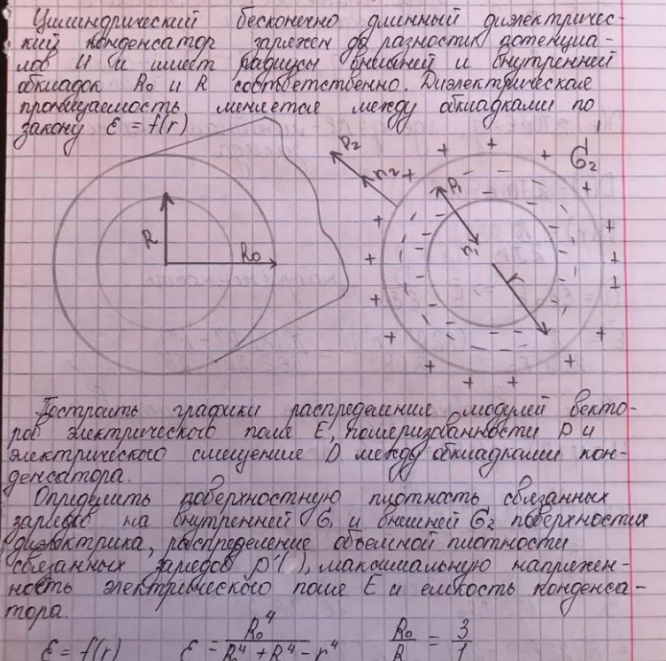 Цилиндрический бесконечно длинный диэлектричес-
кий конденсатор заряжен до разности потенциа-
лов U и имеет радиусы внешней и внутренней
обкладок R₀ и R соответственно. Диэлектрическая
проницаемость меняется между обкладками по
закону ε = f(r)
R
R₀
P₂
n₂
P₁
n₁
r
σ₂'
Построить графики распределения модулей векто-
ров электрического поля E, поляризованности P и
электрического смещения D между обкладками кон-
денсатора.
Определить поверхностную плотность связанных
зарядов на внутренней σ₁ и внешней σ₂ поверхности
диэлектрика, распределение объемной плотности
связанных зарядов ρ'( ), максимальную напряжен-
ность электрического поля E и емкость конденса-
тора.
ε = f(r) ε = R₀⁴ / (R₀⁴ + R⁴ - r⁴) R₀/R = 3/1